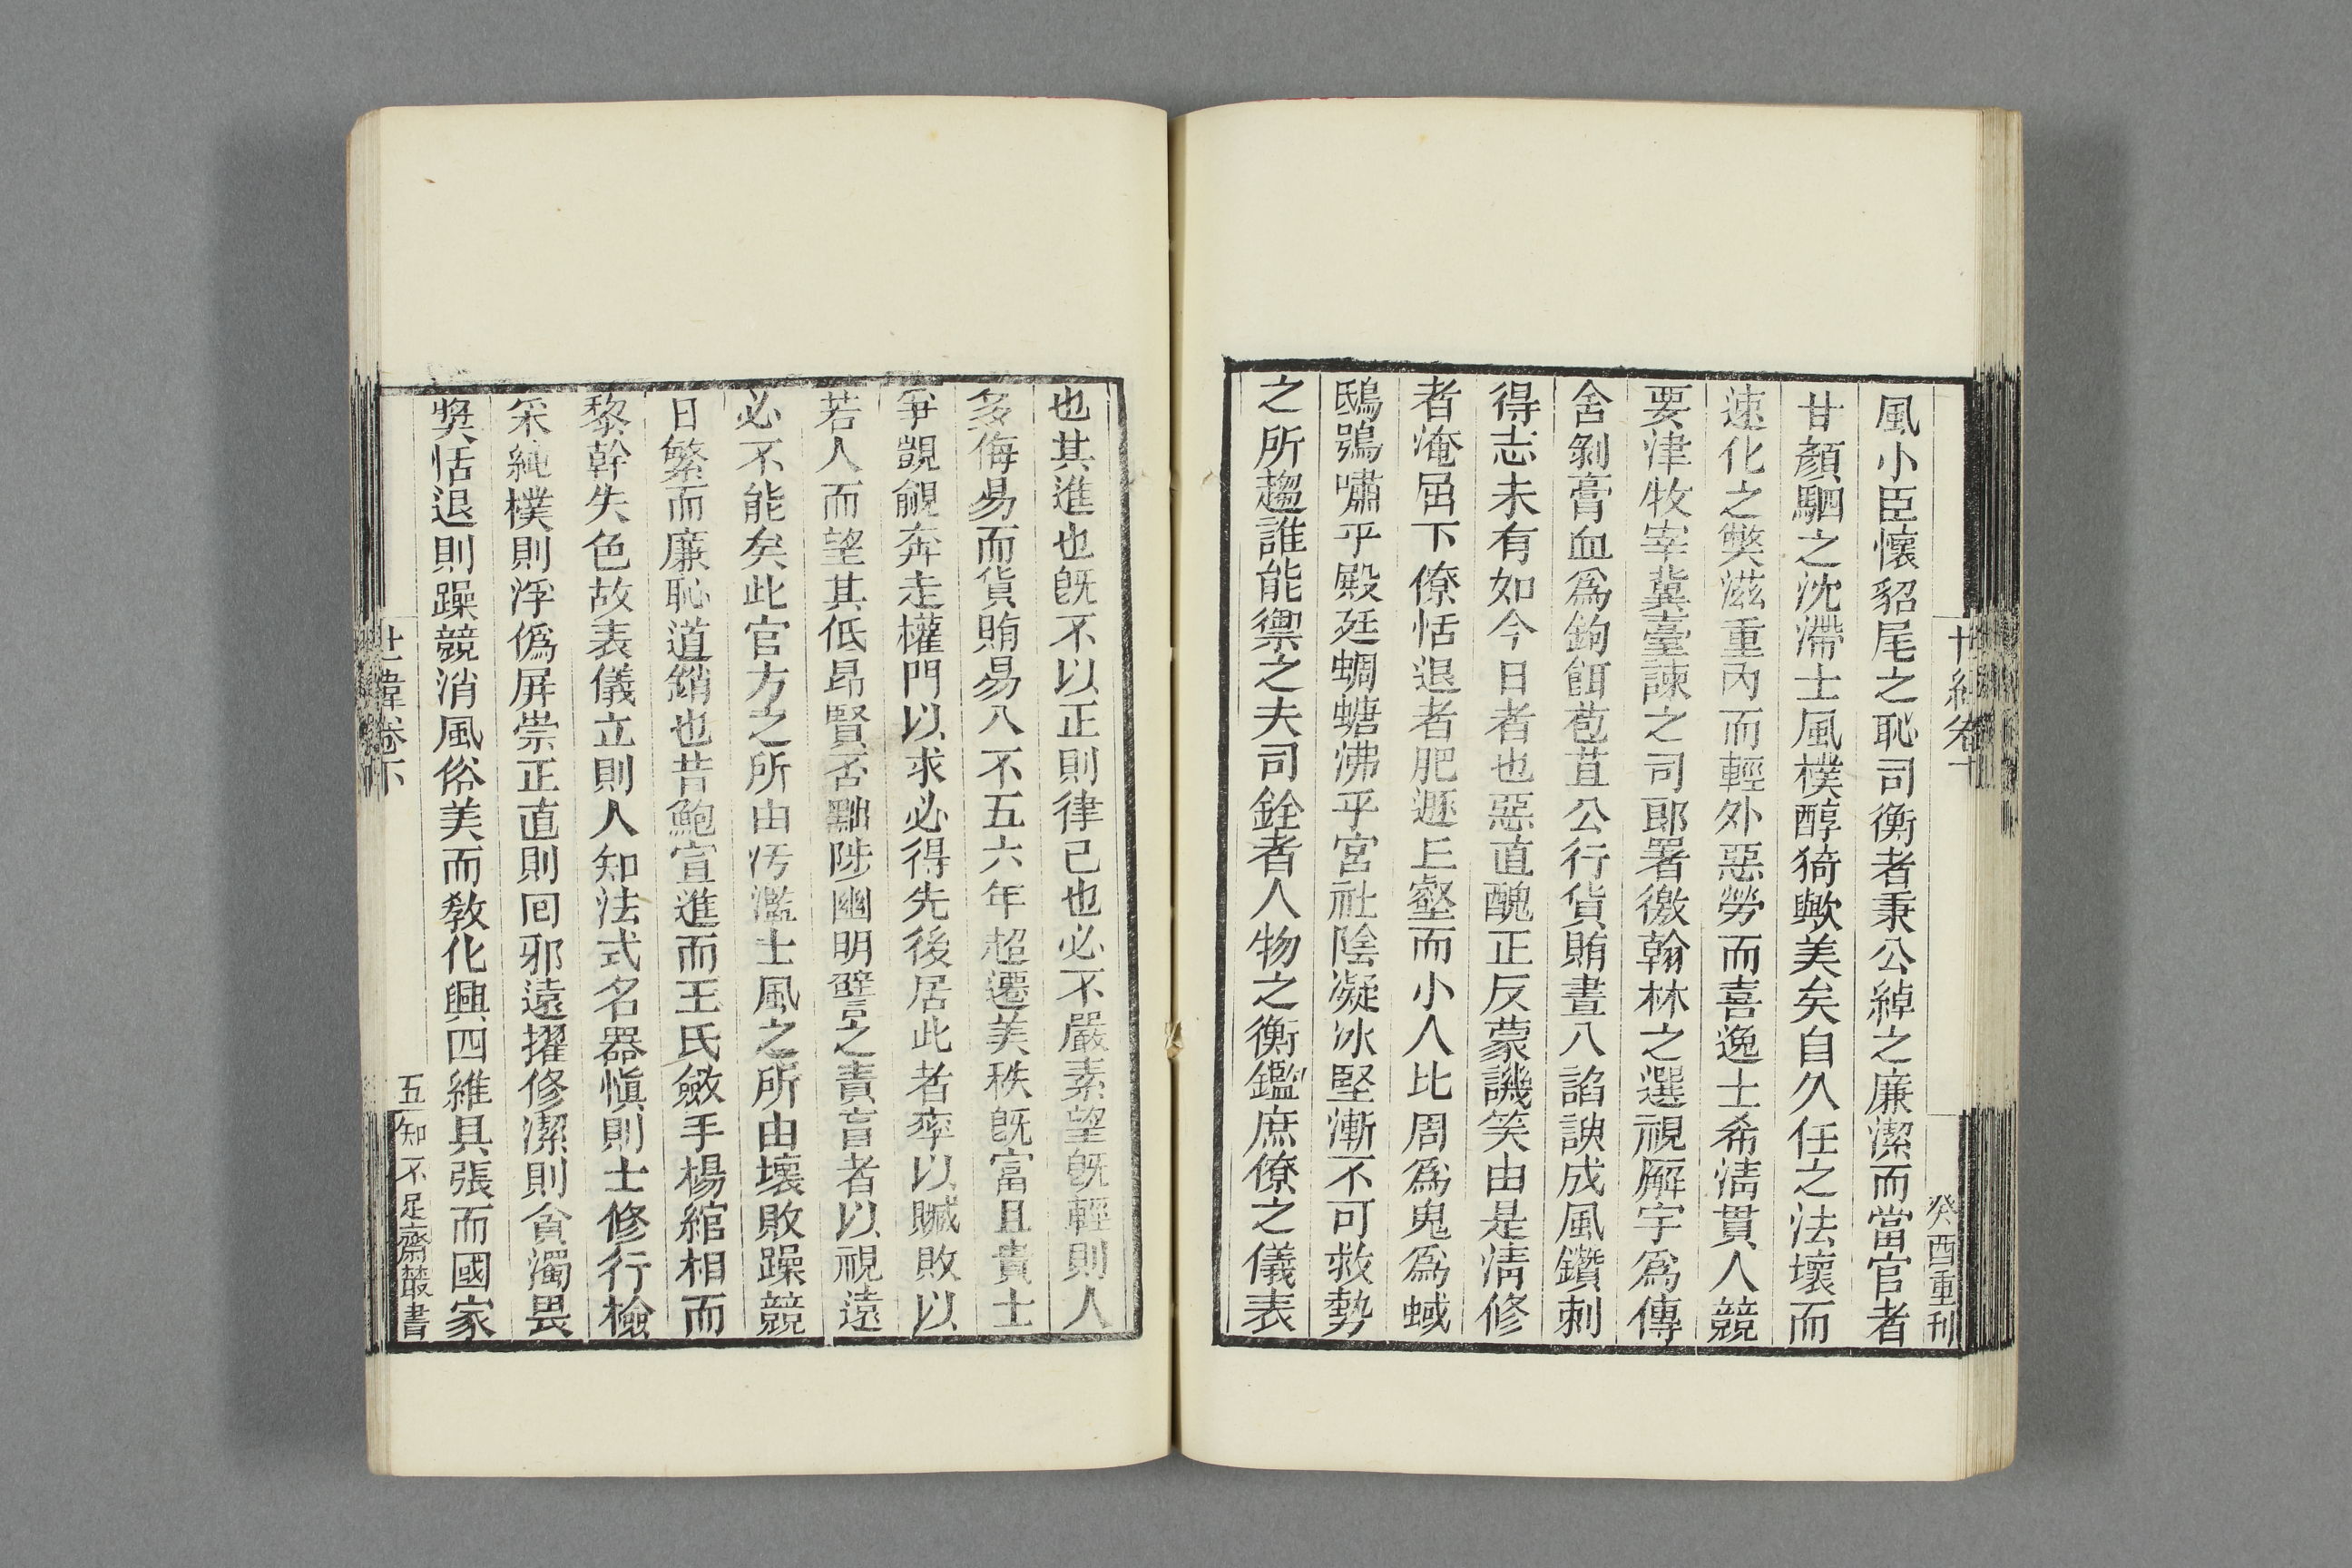 癸酉重刊
風小臣懷貂尾之恥司衡者秉公綽之廉潔而當官者
甘顏駟之沈滯士風樸醇猗歟美矣自久任之法壞而
速化之獘滋重內而輕外惡勞而喜逸士希淸貫人競
要津牧宰冀臺諫之司郎署徼翰林之選視廨宇爲傳
舍剝膏血爲鉤餌苞苴公行貨賄晝入諂諛成風鑽刺
得志未有如今日者也惡直醜正反蒙譏笑由是淸修
者淹屈下僚恬退者肥遯丘壑而小人比周爲鬼爲蜮
鴟鴞嘯乎殿廷蜩螗沸乎宮社陰凝冰堅漸不可救勢
之所趨誰能禦之夫司銓者人物之衡鑑庶僚之儀表
也其進也旣不以正則律己也必不嚴素望旣輕則人
多侮易而貨賄易入不五六年超遷美秩旣富且貴士
爭覬覦奔走權門以求必得先後居此者率以贓敗以
若人而望其低昂賢否黜陟幽明譬之責盲者以視遠
必不能矣此官方之所由汚濫士風之所由壞敗躁競
日繁而廉恥道銷也昔鮑宣進而王氏斂手楊綰相而
黎幹失色故表儀立則人知法式名器愼則士修行檢
采純樸則浮僞屏崇正直則回邪遠擢修潔則貪濁畏
奬恬退則躁競消風俗美而敎化興四維具張而國家
世緯卷下
五
知不足齋叢書